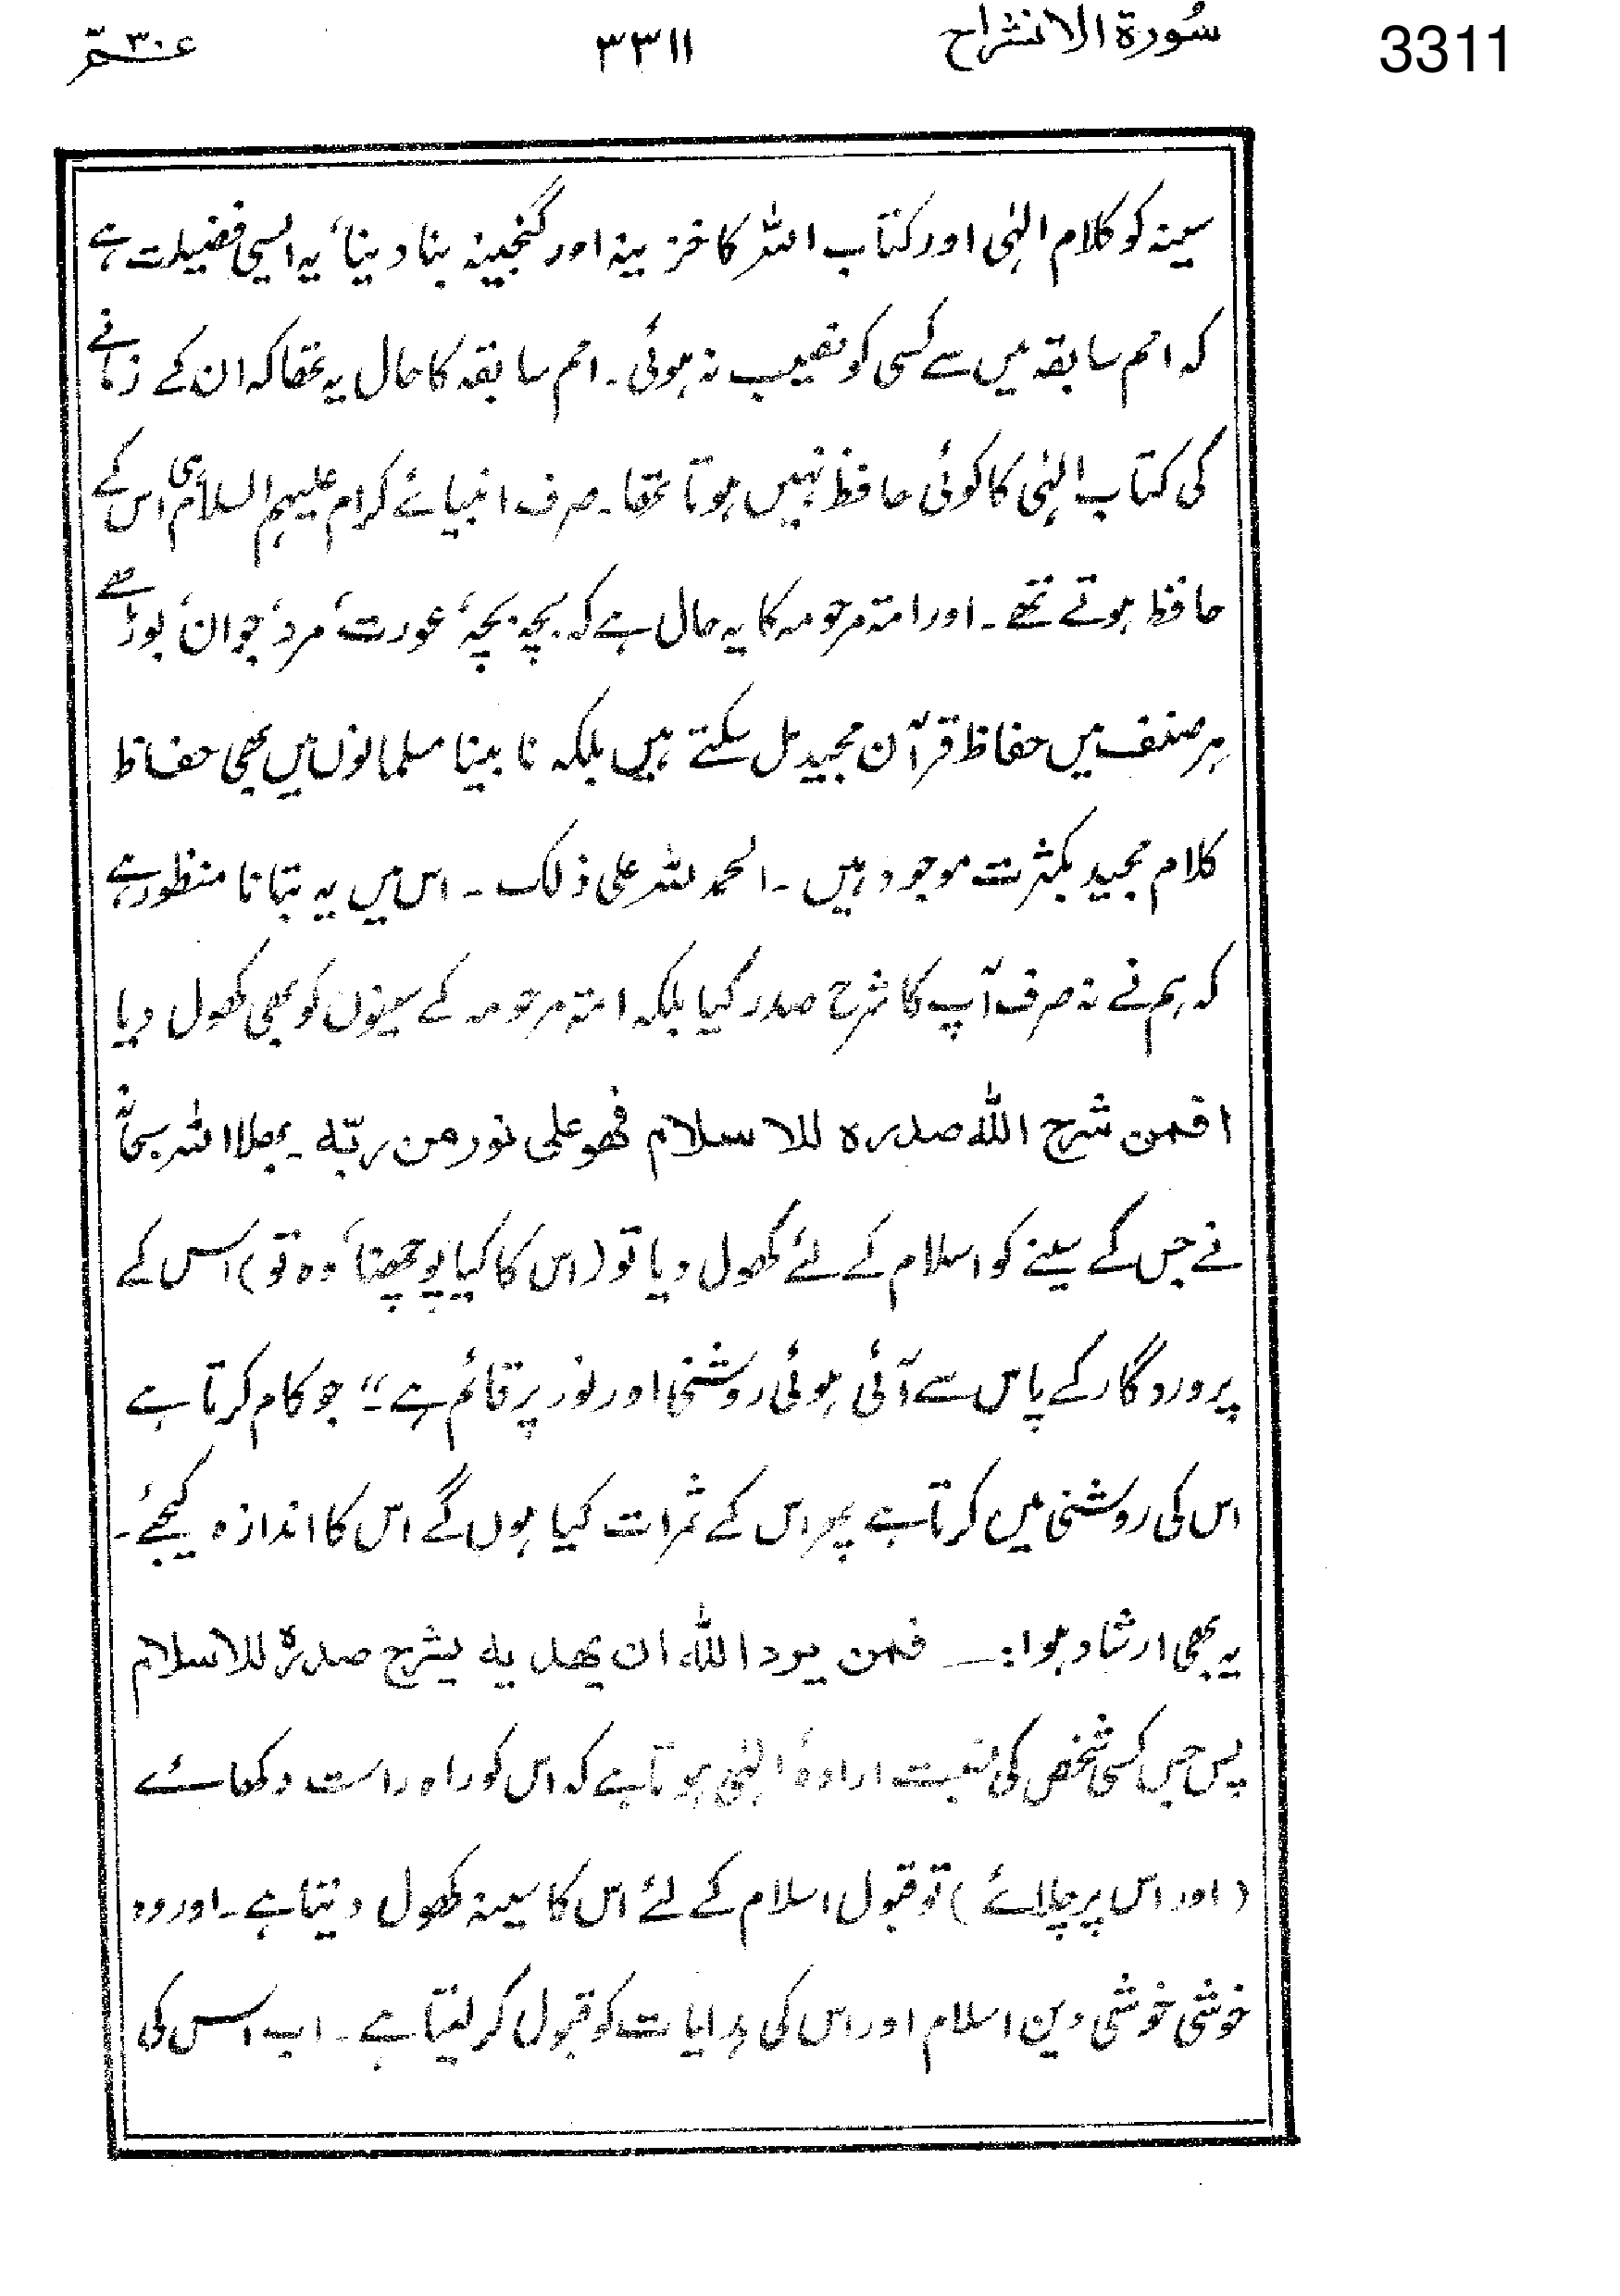 3311
سُورۃ الانشراح ۳۳۱۱ عمّ ۳۰
سینہ کو کلام الہٰی اور کتاب اللہ کا خزینہ اور گنجینہ بنا دینا، یہ ایسی فضیلت ہے
کہ امم سابقہ میں سے کسی کو نصیب نہ ہوئی۔ امم سابقہ کا حال یہ تھا کہ ان کے زمانے
کی کتاب الہٰی کا کوئی حافظ نہیں ہوتا تھا۔ صرف انبیائے کرام علیہم السلام ہی اس کے
حافظ ہوتے تھے۔ اور امتہ مرحومہ کا یہ حال ہے کہ بچہ بچہ، عورت، مرد، جوان، بوڑھے
ہر صنف میں حفاظ قرآن مجید مل سکتے ہیں بلکہ نابینا مسلمانوں میں بھی حفاظ
کلام مجید بکثرت موجود ہیں۔ الحمد للہ علی ذلک۔ اس میں یہ بتانا منظور ہے
کہ ہم نے نہ صرف آپ کا شرح صدر کیا بلکہ امتہ مرحومہ کے سینوں کو بھی کھول دیا
افمن شرح اللہ صدرہ للاسلام فھو علی نور من ربّہ۔ بھلا اللہ سبحانہٗ
نے جس کے سینے کو اسلام کے لئے کھول دیا تو (اس کا کیا پوچھنا، وہ تو) اس کے
پروردگار کے پاس سے آئی ہوئی روشنی اور نور پر قائم ہے ۔“ جو کام کرتا ہے
اس کی روشنی میں کرتا ہے پھر اس کے ثمرات کیا ہوں گے اس کا اندازہ کیجئے۔
یہ بھی ارشاد ہوا:۔ فمن یرد اللہ ان یھدیہ یشرح صدرہٗ للاسلام
پس جس کسی شخص کی نسبت ارادۂ الہٰی ہوتا ہے کہ اس کو راہ راست دکھائے
(اور اس پر چلائے) تو قبول اسلام کے لئے اس کا سینہ کھول دیتا ہے۔ اور وہ
خوشی خوشی دین اسلام اور اس کی ہدایات کو قبول کر لیتا ہے۔ اب اس کی